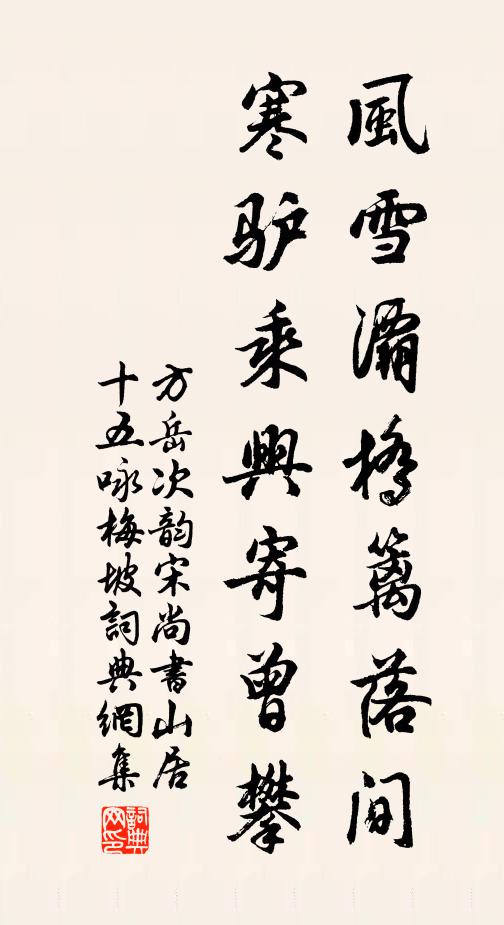 風雪灞橋籬落間
寒驴乘興寄曾攀
方岳次韵宋尚書山居
十五咏梅坡詞典網集
詞典
网印